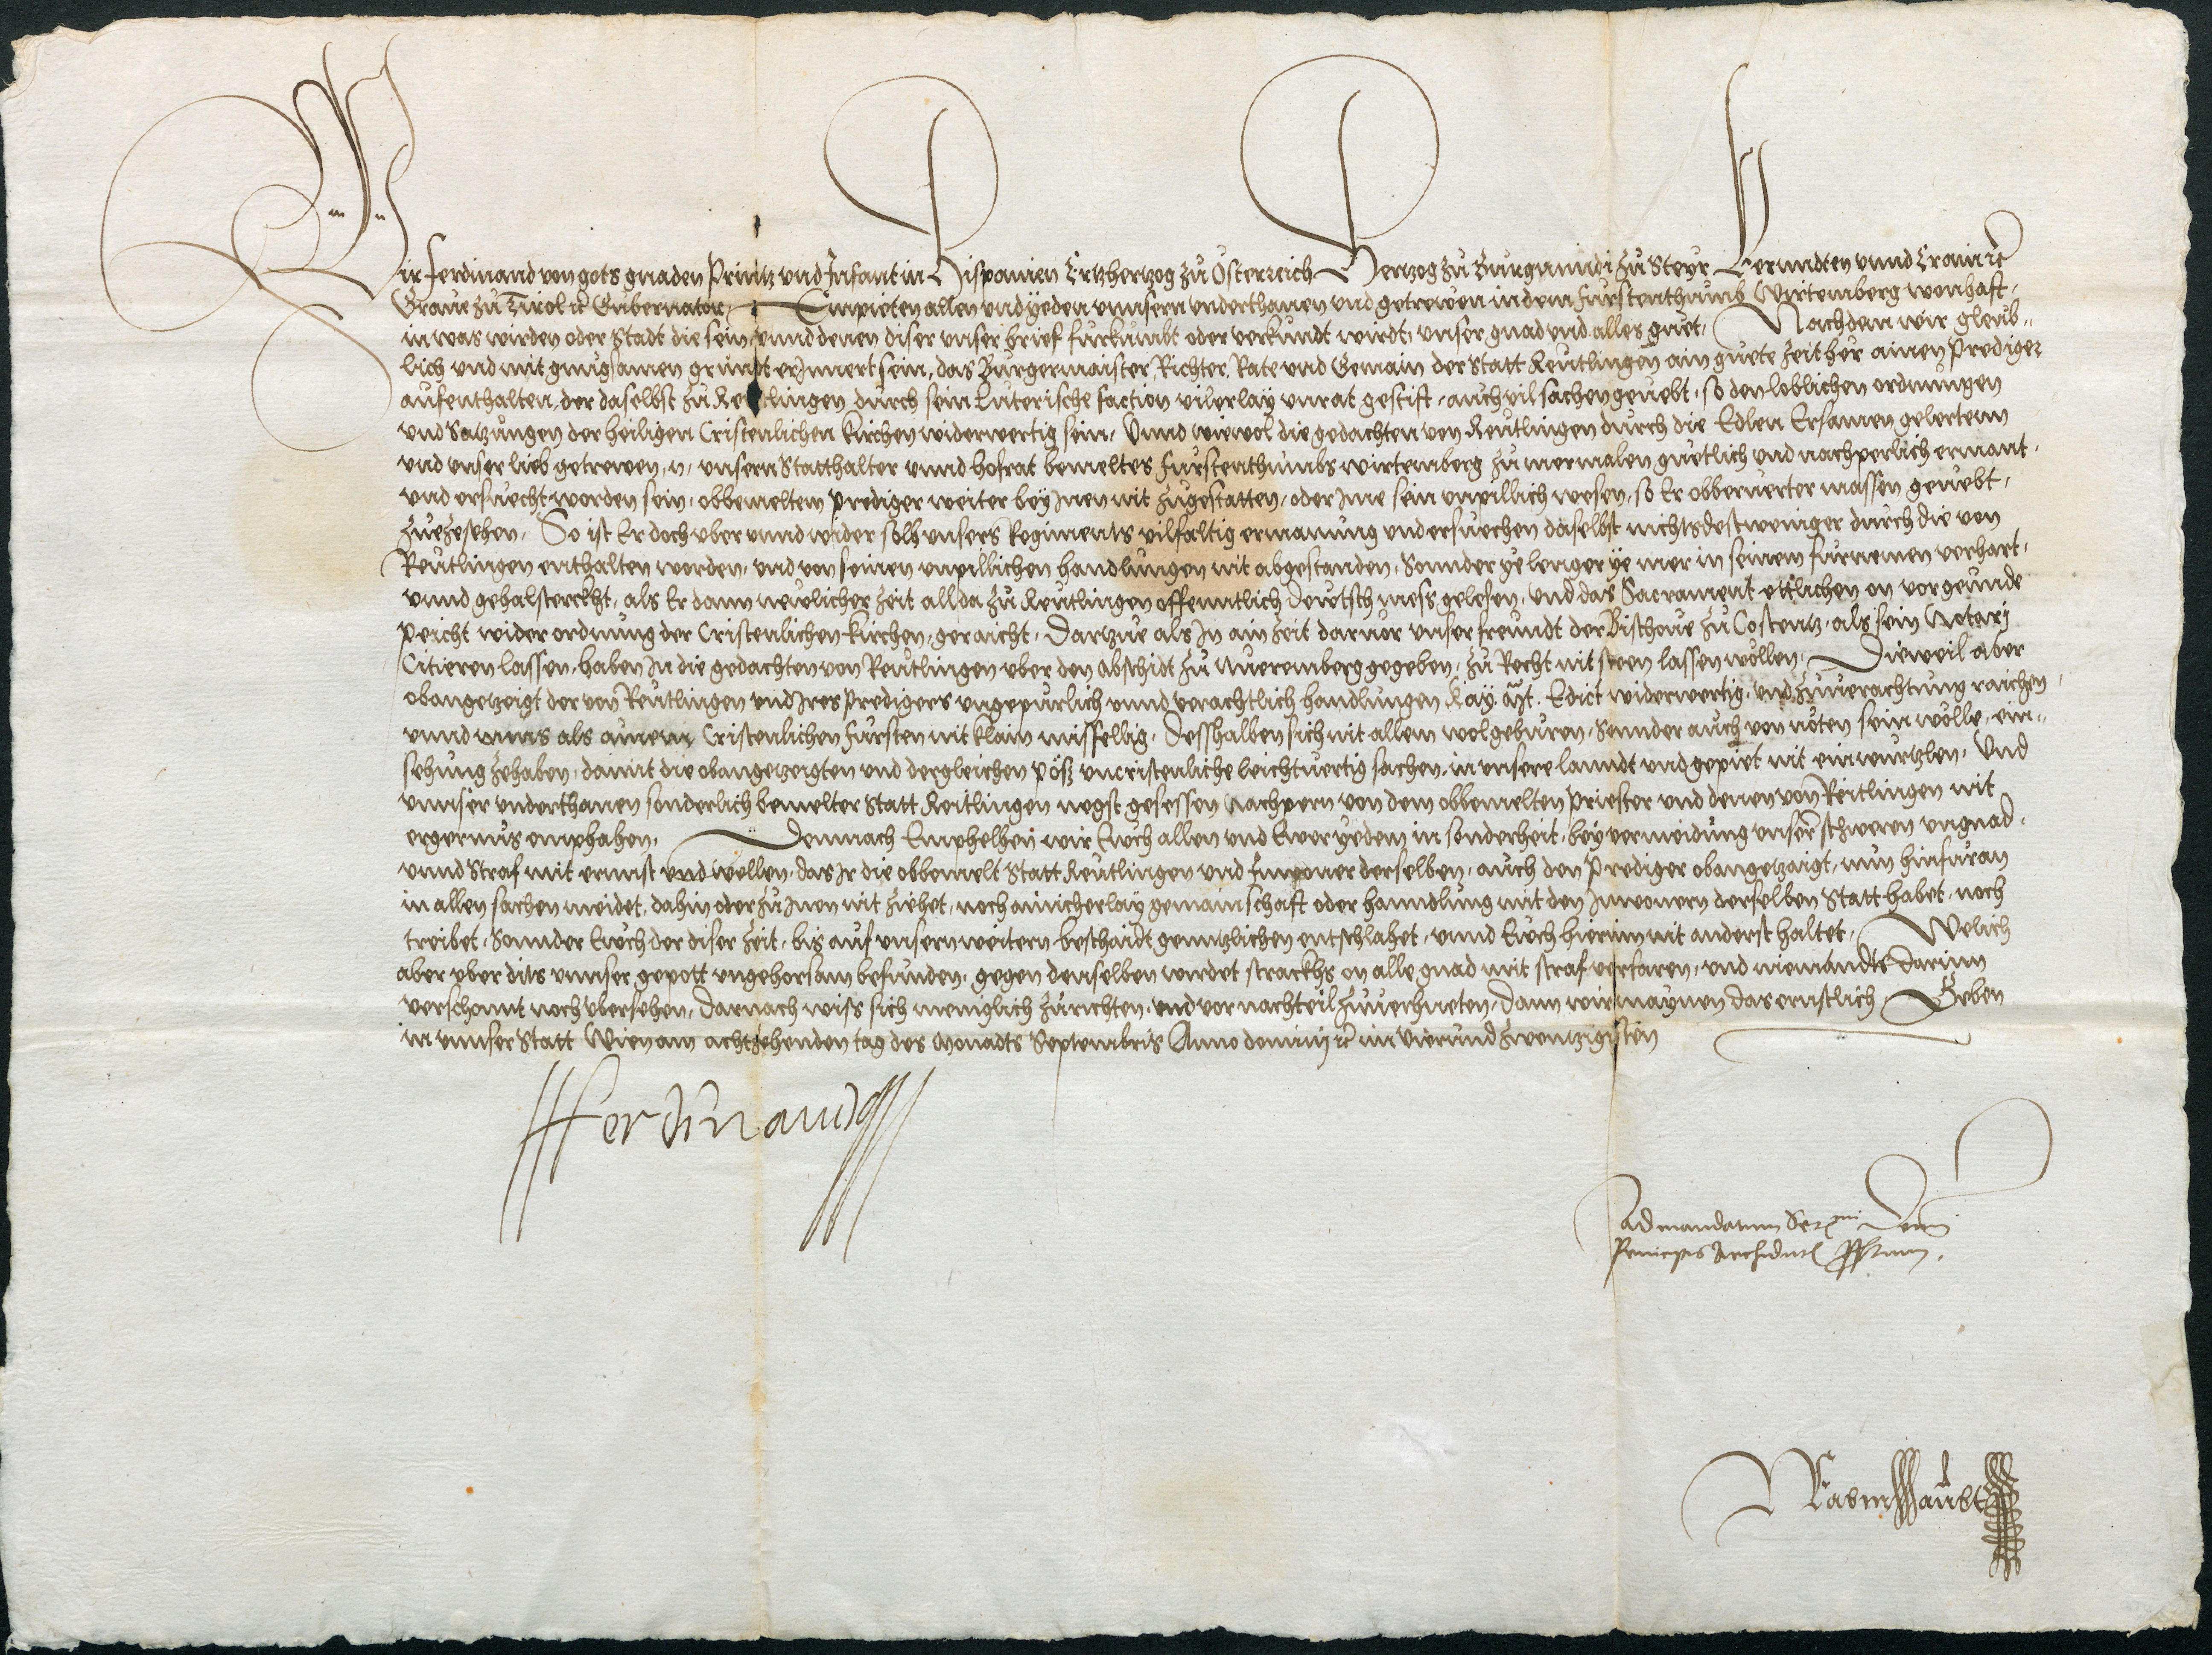 Wir Ferdinand von gots gnaden Printz vnd Infant in Hispanien Ertzhertzog zů Osterreich Hertzog zů Burgunndi zů Steyr Kernndten vnnd Crain rc
Graue zů Tirol rc Gubernator, Empieten allen vnd yeden vnnsern vnderthanen vnd getrewen in dem Furstenthumb Wirtemberg wonhaft,
in was wirden oder Stadt die sein, vnnd denen diser vnser brief furkumbt oder verkundt wirdt, vnser gnad vnd alles guet, Nachdem wir gleub=
lich vnd mit gnugsamen grundt erJnnert sein, das Burgermaister, Richter, Rate vnd Gemain der Statt Reutlingen ain guete zeither ainen Prediger
aufenthalten, der daselbst zu Reutlingen durch sein Luterische faction vilerlay vnrat gestift, auch vil sachen geuebt, so den loblichen ordnungen
vnd Satzungen der heiligen Cristenlichen kirchen widerwertig sein, Vnnd wiewol die gedachten von Reutlingen durch die Edlen Ersamen gelertenn
vnd vnser lieb getrewen, n, vnsern Statthalter vnnd hofrat bemeltes Furstenthumbs wirtemberg zu mermalen guetlich vnd nachperlich ermant,
vnd ersuecht worden sein, obbemeltem prediger weiter bey Jnen nit zugestatten, oder Jme sein vnpillich wesen, so Er obberuerter massen geuebt,
zuezesehen, So ist Er doch vber vnnd wider solh vnsers Regiments vilfaltig ermanung vnd ersuechen daselbst nichtsdestweniger durch die von
Reutlingen enthalten worden, vnd von seinen vnpillichen handlungen nit abgestanden, Sonnder ye lenger ye mer in seinem furnemen verhart,
vnnd gehalsterckht, als Er dann newlicher zeit allda zu Reutlingen offenntlich dewtsch mess gelesen, vnd das Sacrament ettlichen on vorgeunde
peicht wider ordnung der Cristenlichen kirchen, geraicht, Dartzue als Jn ain zeit daruor vnser freundt der Bischoue zu Costentz, als sein Notarj
Citieren lassen, haben Jn die gedachten von Reutlingen vber den abschidt zu Nuremberg gegeben, zu Recht nit steen lassen wöllen, Dieweil aber
obangetzeigt der von Reutlingen vnd Jres Predigers vngepurlich vnnd verachtlich handlungen Kay. Mt. Edict widerwertig, vnd zuuerachtung raichen,
vnnd vnns als ainem Cristenlichen Fursten nit klain missfellig, Desshalben sich nit allein wolgeburen, Sonnder auch von nöten sein wölle, ein=
sehung zehaben, damit die obangetzeigten vnd dergleichen pöss vncristenliche leichtuertig sachen, in vnsere lanndt vnd gepiet nit einwurtzlen, Vnd
vnnser vnderthanen sonderlich bemelter Statt Reitlingen negst gesessen Nachpern von dem obbemelten Priester vnd denen von Reitlingen nit
ergernus emphahen, Demnach Emphelhen wir Euch allen vnd Ewer yedem in sonderheit, bey vermeidung vnser schweren vngnad,
vnnd Straf mit ernnst vnd wellen, das Jr die obbemelt Statt Reutlingen vnd Innwoner derselben, auch den Prediger obangetzaigt, nun hinfuran
in allen sachen meidet, dahin oder zu Jnen nit ziehet, noch ainicherlay gemainschaft oder hanndlung mit den Jnwonern derselben Statt habet, noch
treibet, Sonnder Euch der diser zeit, bis auf vnsern weitern beschaidt genntzlichen entschlahet, vnnd Euch hierinn nit anderst haltet, Welich
aber vber dits vnnser gepott vngehorsam befunden, gegen denselben wirdet strackhs on alle gnad mit straf verfaren, vnd niemandts darinn
verschonnt noch vbersehen, darnach wiss sich meniglich zurichten, vnd vor nachteil zuuerhueten, dann wir maynen das ernstlich, Geben
in vnnser Statt Wien am achtzehenden tag des Monadts Septembris Anno dominj rc im vierundzwentzigisten
Ferdinandus
Ad mandatum Ser.mi Domi
Principis Archiducis pprium.
Rabmhaubt